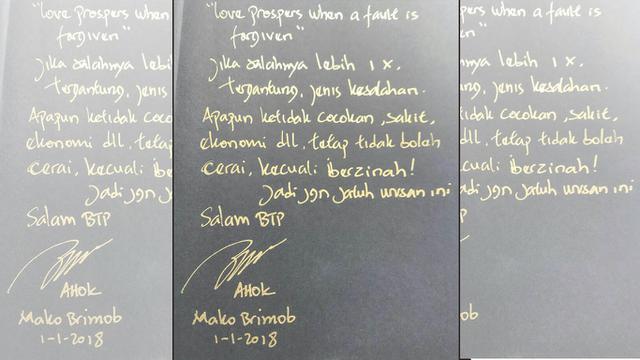 "love prospers when a fault is
forgiven"
Jika salahnya lebih 1 x.
Tergantung, jenis kesalahan.
Apapun ketidak cocokan, sakit,
ekonomi dll, tetap tidak bolah
cerai, kecuali berzinah!
Jadi jgn jatuh urusan ini
Salam BTP
AHOK
Mako Brimob
1-1-2018